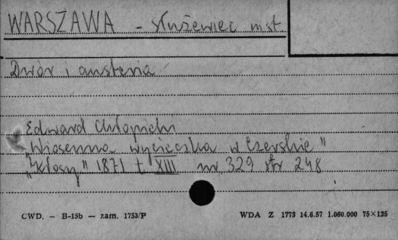 WARSZAWA - Służewiec mst
Dwór i austeria
Edward Chłopicki
"Wiosenna wycieczka w Czerskie"
"Kłosy" 1871 t XIII nr 329 str 248
CWD. — B-15b — zam. 1753/P WDA Z 1773 14.6.57 1.060.000 75×125